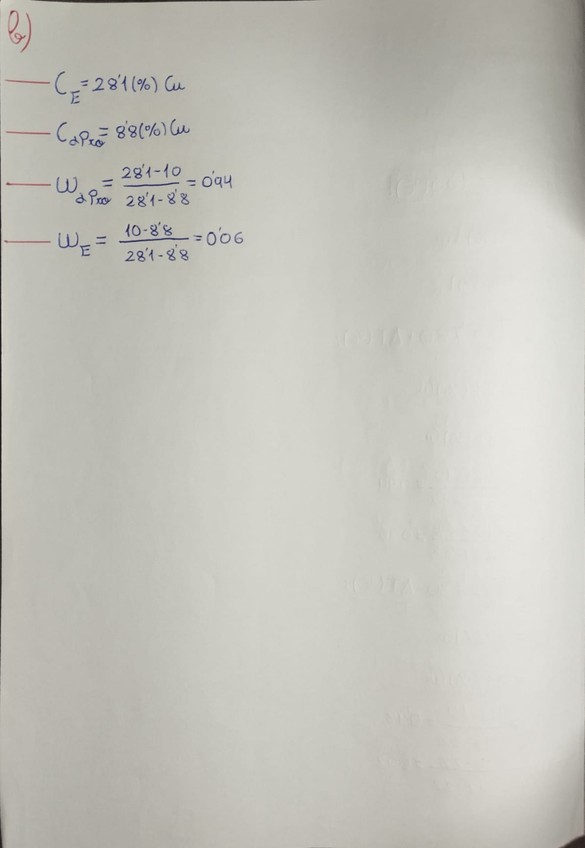 b)
C_E = 28'1(%) Cu
C_αPro = 8'8(%) Cu
W_αPro = (28'1-10)/(28'1-8'8) = 0'94
W_E = (10-8'8)/(28'1-8'8) = 0'06